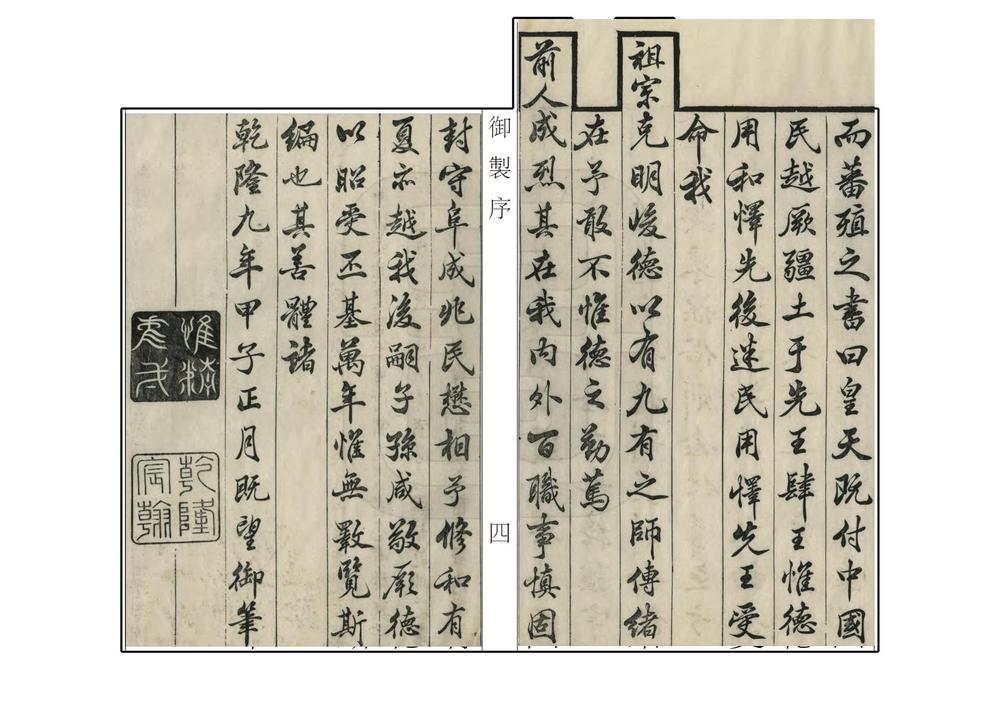 而蕃殖之書曰皇天既付中國
民越厥疆土于先王肆王惟德
用和懌先後迷民用懌先王受
命我
祖宗克明峻德以有九有之師傳緒
在予敢不惟德之勤篤
前人成烈其在我內外百職事慎固
御製序
四
封守阜成兆民懋相予修和有
夏亦越我後嗣子孫咸敬厥德
以昭受丕基萬年惟無斁覽斯
編也其善體諸
乾隆九年甲子正月既望御筆
惟精
惟一
乾隆
宸翰